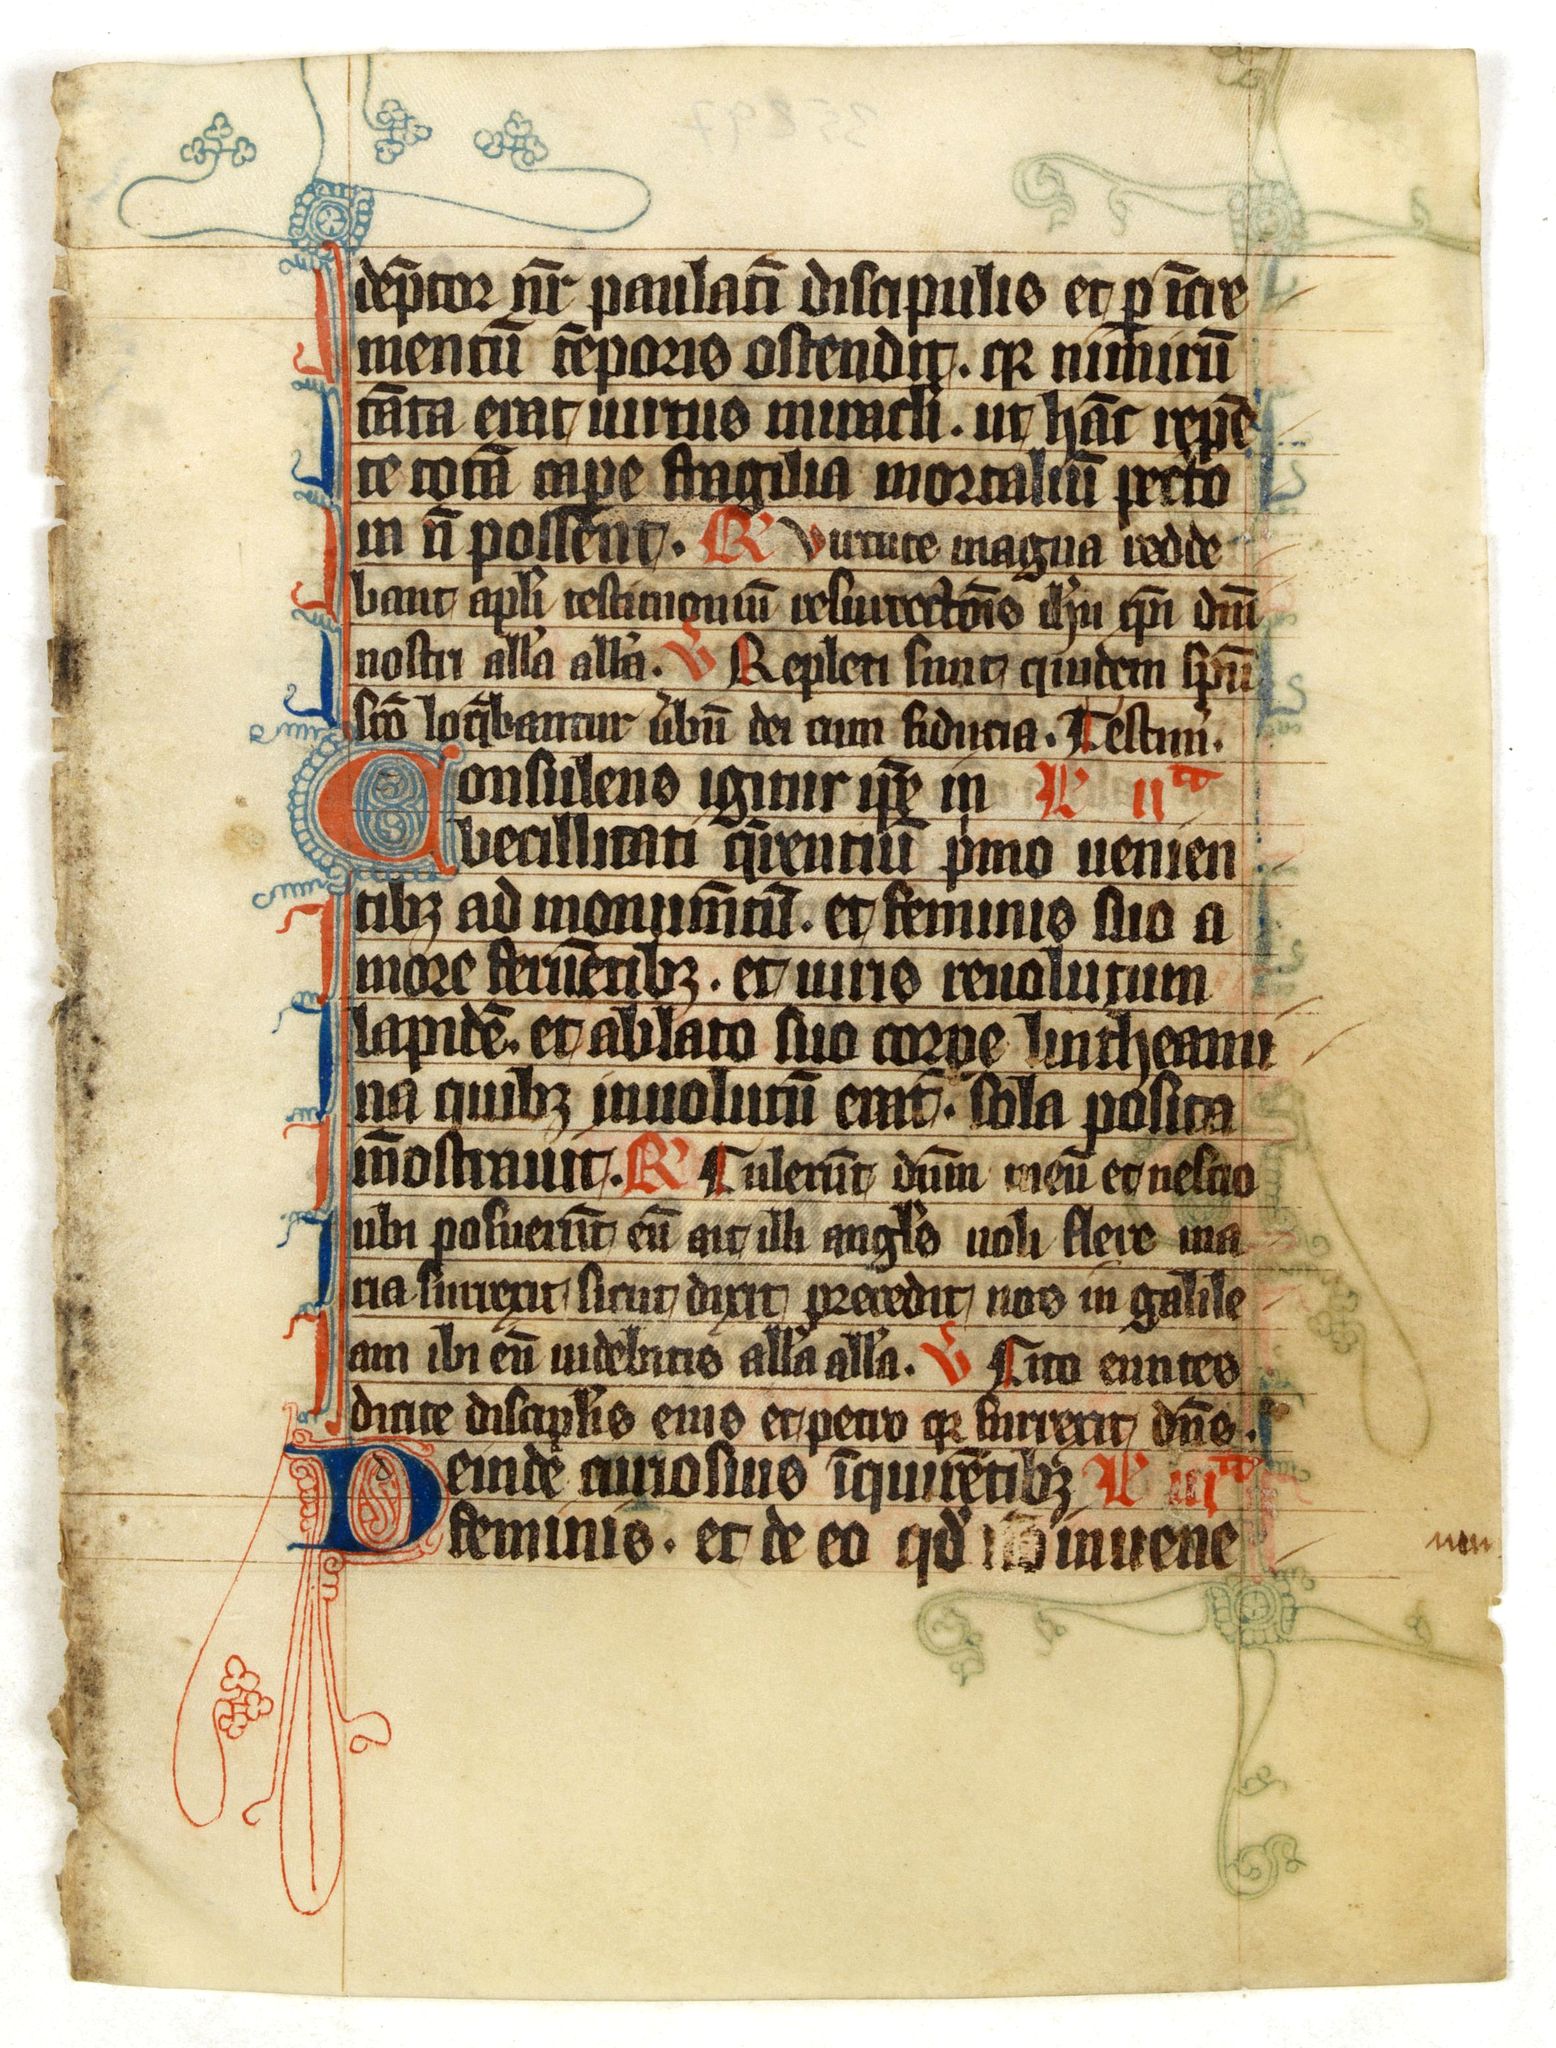 dēptor nr̄ paulatī discipulis et ꝑ īcre
mentū tēporis ostendit. qꝛ nimirū
tāta erat uirtus miracli. ut hāc repē
te totā cape fragilia mortaliū pecto
ra n̄ possent. ℟ Virtute magna redde
bant apl̄i testimoniū resurrectōis ih̄u xp̄i dn̄i
nostri all̄a all̄a. ℣ Repleti sunt quidem sp̄u
sc̄o loq̄bantur ūbū dei cum fiducia. Testim̄.
Consulens igitur ip̄e in L̄ iiᵃ
becillitati q̄rentiū pͥmo uenien
tibꝫ ad monumētū. et feminis suo a
more feruētibꝫ. et uiris reuolutum
lapidē. et ablato suo corpe lintheami
na quibꝫ inuolutū erat. sola posita
mōstrauit. ℟ Tulerūt dn̄m meū et nescio
ubi posuerūt eū ait illi angl̄s noli flere ma
ria surrexit sicut dixit precedit uos in galile
am ibi eū uidebitis all̄a all̄a. ℣ Cito euntes
dicite discipl̄is eius et petro qꝛ surrexit dn̄s.
Deinde curiosius īquirētibꝫ L̄ iiiᵃ
feminis. et de eo qd̄ inuene
non